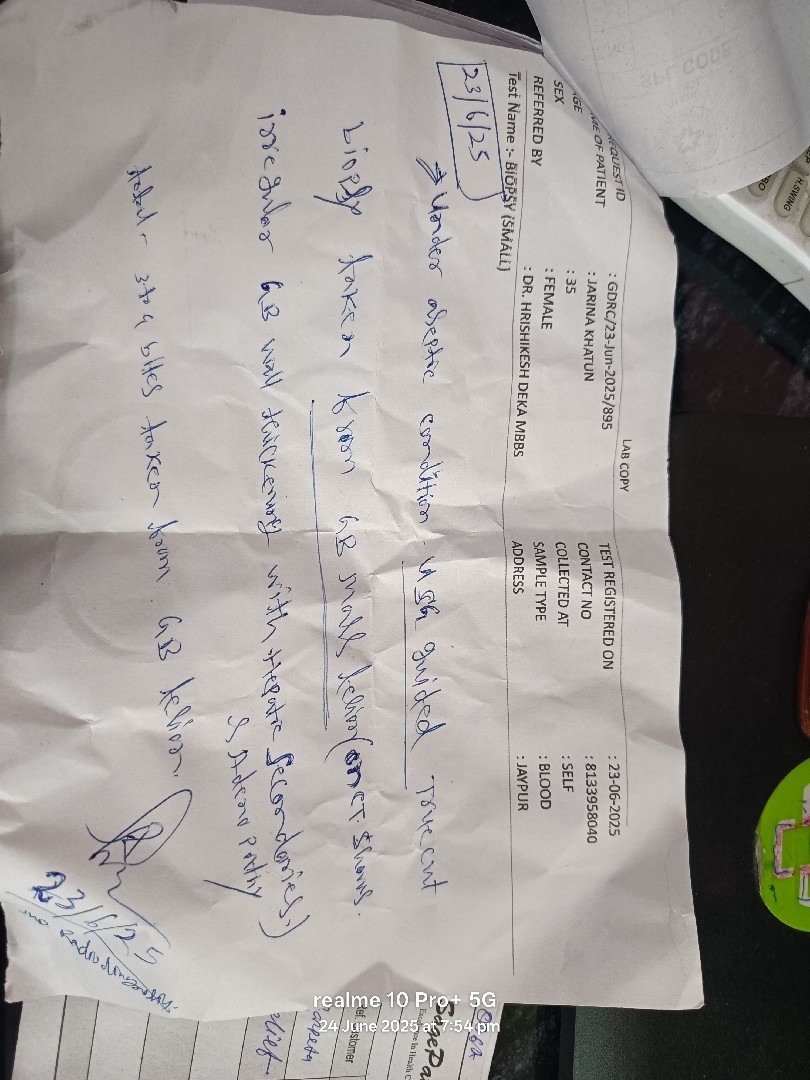 LAB COPY
REQUEST ID : GDRC/23-Jun-2025/895 TEST REGISTERED ON : 23-06-2025
ME OF PATIENT : JARINA KHATUN CONTACT NO : 8133958040
GE : 35 COLLECTED AT : SELF
SEX : FEMALE SAMPLE TYPE : BLOOD
REFERRED BY : DR. HRISHIKESH DEKA MBBS ADDRESS : JAYPUR
Test Name :- BIOPSY (SMALL)
23/6/25
→ Under aseptic condition USG guided Truecut
biopsy taken from GB
irregular GB wall thickening with Hepatic Secondaries)
& Adenopathy
total - 3 to 4 bites taken from GB
23/6/25
SPL CODE
H.SWING
SagePa
Customer
realme 10 Pro+ 5G
24 June 2025 at 7:54 pm